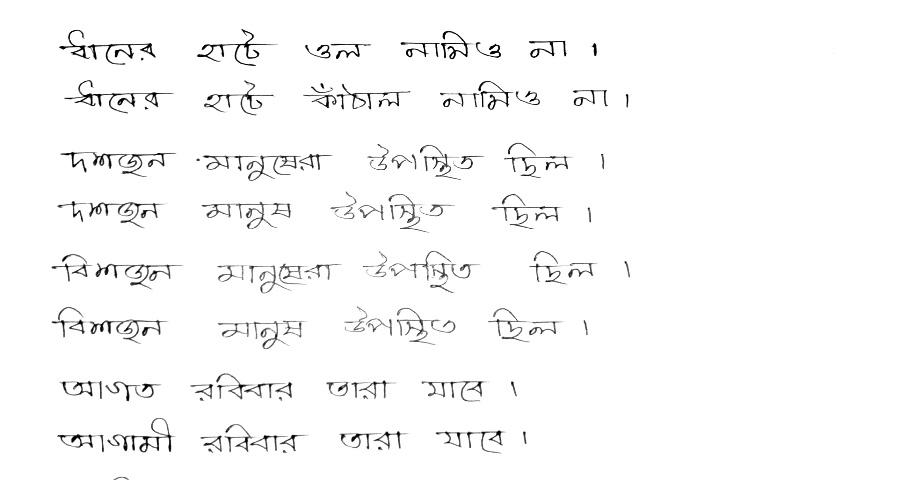 ধানের হাটে ওল নামিও না ।
ধানের হাটে কাঁঠাল নামিও না ।
দশজন মানুষেরা উপস্থিত ছিল ।
দশজন মানুষ উপস্থিত ছিল ।
বিশজন মানুষেরা উপস্থিত ছিল ।
বিশজন মানুষ উপস্থিত ছিল ।
আগত রবিবার তারা যাবে ।
আগামী রবিবার তারা যাবে ।